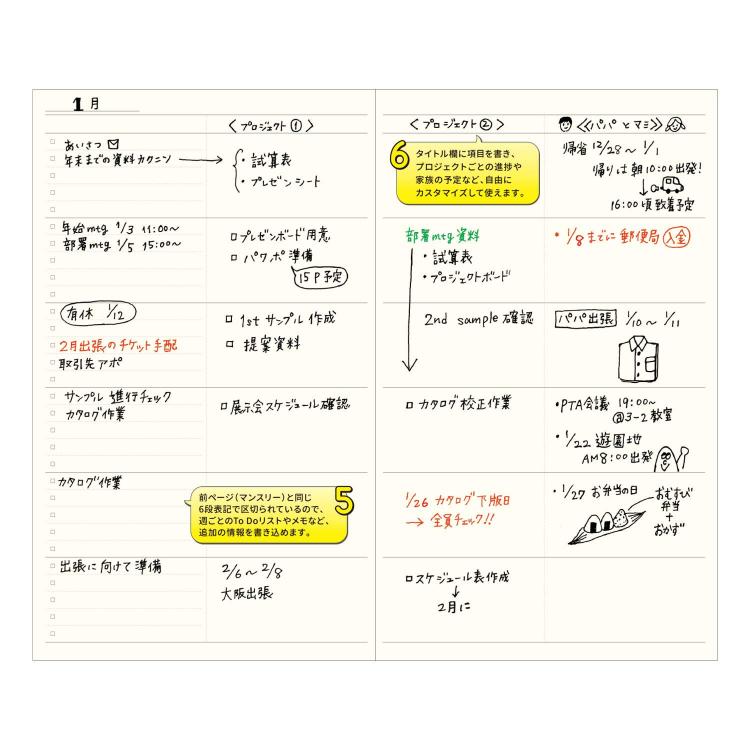 1月
あいさつ
年末までの資料カクニン
年始mtg 1/3 11:00〜
部署mtg 1/5 15:00〜
有休 1/12
2月出張のチケット手配
取引先アポ
サンプル進行チェック
カタログ作業
カタログ作業
出張に向けて準備
〈プロジェクト①〉
・試算表
・プレゼンシート
□プレゼンボード用意
□パワポ準備
15P予定
□ 1stサンプル作成
□ 提案資料
□展示会スケジュール確認
前ページ(マンスリー)と同じ
6段表記で区切られているので、
週ごとのTo Doリストやメモなど、
追加の情報を書き込めます。
5
2/6〜2/8
大阪出張
〈プロジェクト②〉
6
タイトル欄に項目を書き、
プロジェクトごとの進捗や
家族の予定など、自由に
カスタマイズして使えます。
部署mtg資料
・試算表
・プロジェクトボード
2nd sample確認
□カタログ校正作業
1/26 カタログ下版日
→ 全員チェック!!
□スケジュール表作成
↓
2月に
《パパとマミ》
帰省 12/28〜1/1
帰りは朝10:00出発!
16:00頃到着予定
・1/8までに郵便局 入金
パパ出張 1/10〜1/11
・PTA会議 19:00〜
@3-2教室
・1/22 遊園地
AM8:00出発
・1/27 お弁当の日
おむすび
弁当
+
おかず